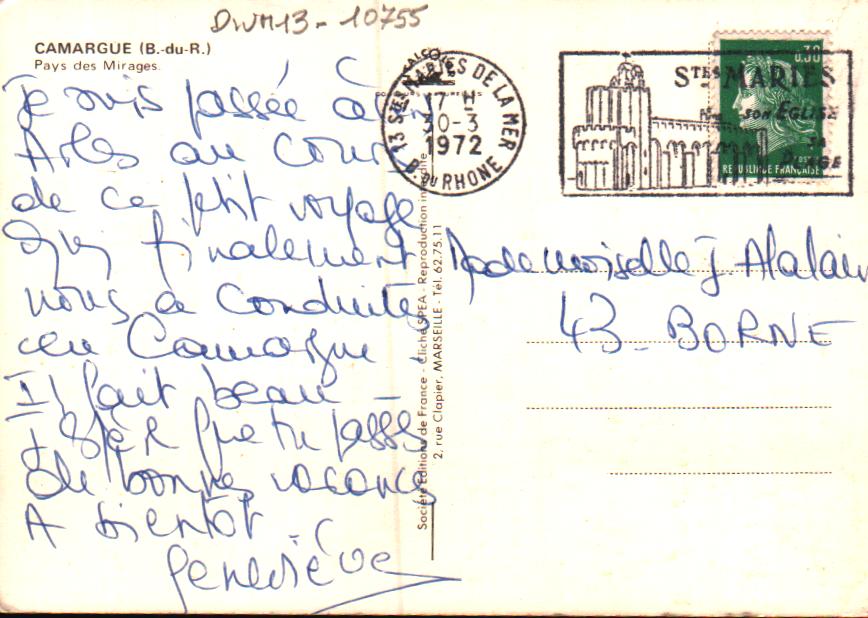 DWM13-10755
CAMARGUE (B.-du-R.)
Pays des Mirages.
Je suis passée à
Arles au cours
de ce petit voyage
qui finalement
nous a conduites
en Camargue.
Il fait beau -
J'espère que tu passes
de bonnes vacances
A bientôt.
Geneviève
13 STES MARIES DE LA MER
17 H
30-3
1972
B. DU RHONE
STES MARIES
SON EGLISE
SA
PLAGE
0,30
REPUBLIQUE FRANÇAISE
Société Editions de France - Cliché SPEA - Reproduction interdite
2, rue Clapier, MARSEILLE - Tél. 62.75.11
Mademoiselle J. Alalain
43 - BORNE